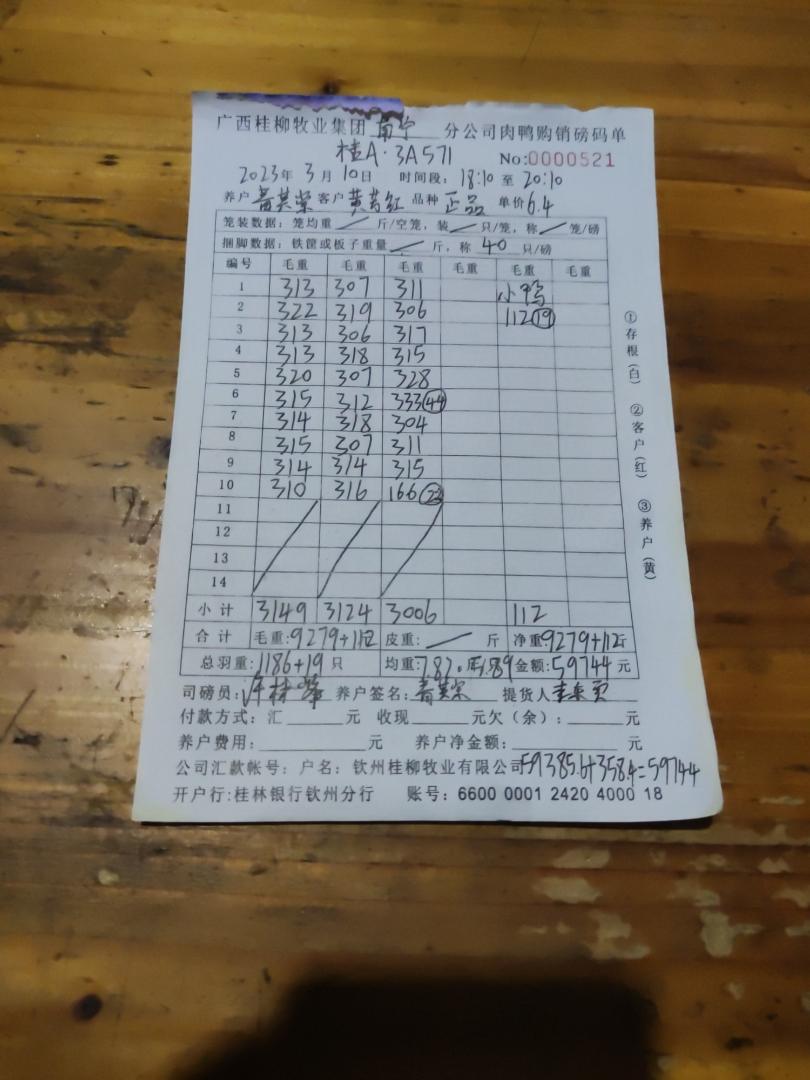 广西桂柳牧业集团 南宁 分公司肉鸭购销磅码单
桂A·3A571 No:0000521
2023年3月10日 时间段: 18:10 至 20:10
养户 客户 黄 红 品种 正品 单价6.4
笼装数据: 笼均重 / 斤/空笼, 装 / 只/笼, 称 / 笼/磅
捆脚数据: 铁筐或板子重量 / 斤, 称 40 只/磅
编号 毛重 毛重 毛重 毛重 毛重 毛重
1 313 307 311 小鸭
2 322 319 306 112 19
3 313 306 317
4 313 318 315
5 320 307 328
6 315 312 333 44
7 314 318 304
8 315 307 311
9 314 314 315
10 310 316 166 22
11
12
13
14
小计 3149 3124 3006 112
合计 毛重:9279+112 皮重: / 斤 净重:9279+112斤
总羽重:1186+19 只 均重:7.82 5.89 金额:59744 元
司磅员: 养户签名: 提货人
付款方式: 汇 元 收现 元欠(余): 元
养户费用: 元 养户净金额: 元
公司汇款帐号: 户名: 钦州桂柳牧业有限公司 59385.6+358.4=59744
开户行:桂林银行钦州分行 账号: 6600 0001 2420 4000 18
①存根(白) ②客户(红) ③养户(黄)